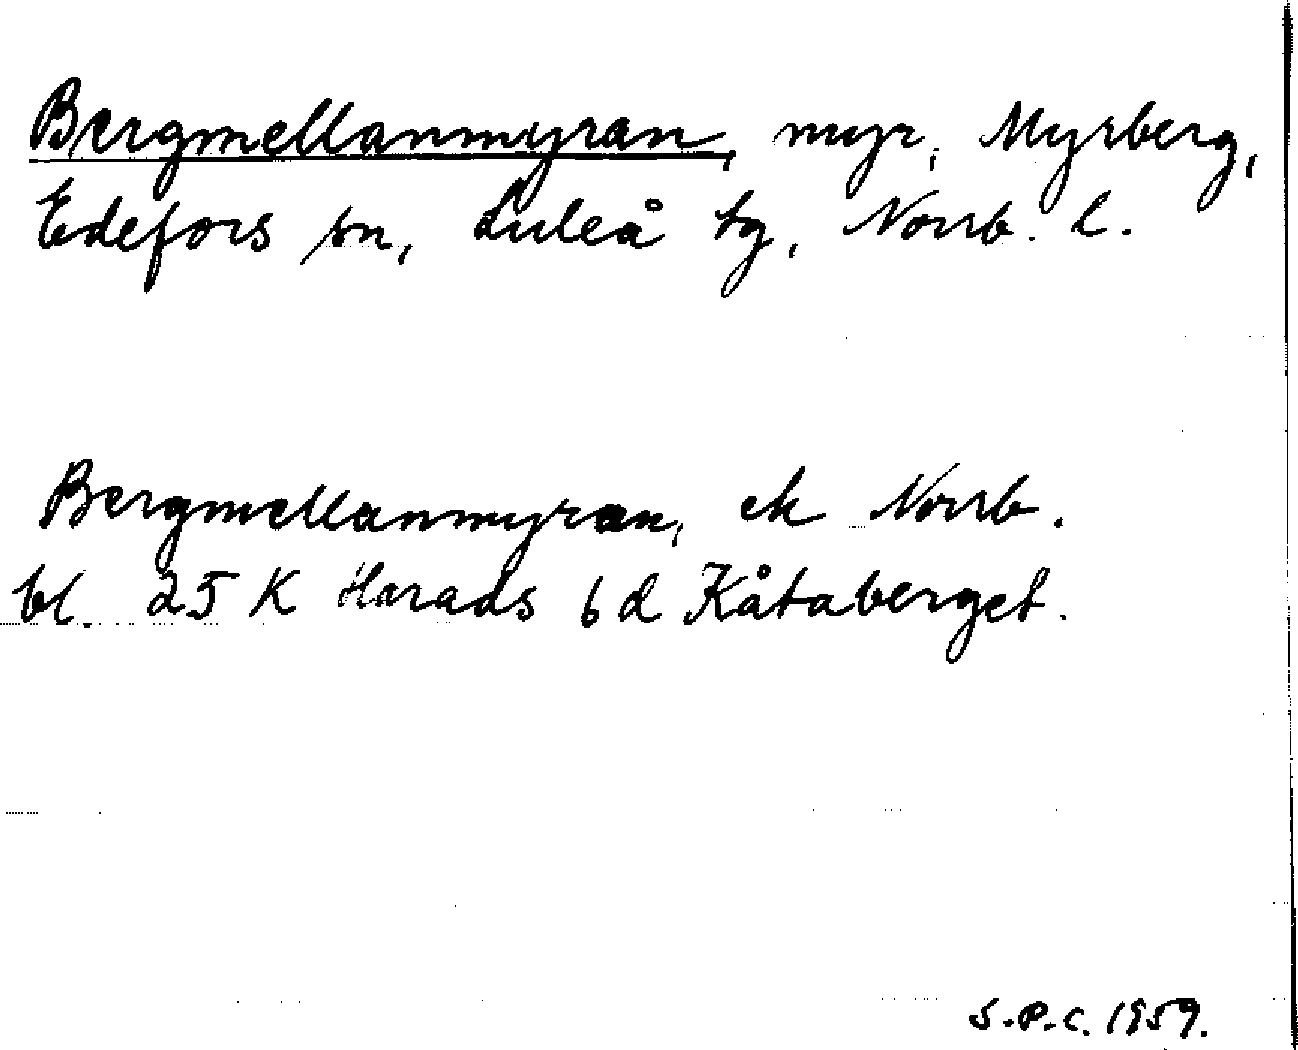 Bergmellanmyran, myr, Myrberg,
Edefors sn, Luleå tg, Norrb. l.
Bergmellanmyran, ek Norrb.
bl. 25 K Harads 6 d Kåtaberget.
S.P.C. 1959.